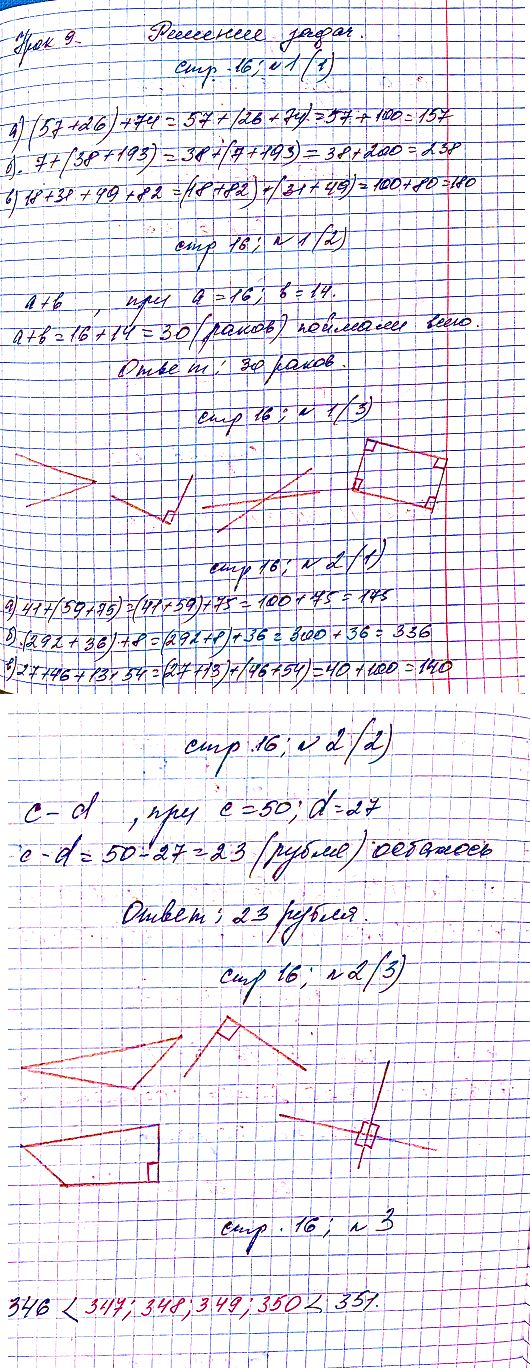 Урок 9. Решение задач.
стр. 16; №1(1)
а) (57+26)+74=57+(26+74)=57+100=157
б). 7+(38+193)=38+(7+193)=38+200=238
в) 18+31+49+82=(18+82)+(31+49)=100+80=180
стр 16; №1(2)
а+в, при а=16; в=14.
а+в=16+14=30(раков) поймали всего.
Ответ: 30 раков.
стр 16; №1(3)
стр 16; №2(1)
а) 41+(59+75)=(41+59)+75=100+75=175
б). (292+36)+8=(292+8)+36=300+36=336
в) 27+46+13+54=(27+13)+(46+54)=40+100=140
стр. 16; №2(2)
c-d, при c=50; d=27
c-d=50-27=23(рубля) осталось
Ответ: 23 рубля.
стр 16; №2(3)
стр. 16; №3
346 < 347; 348; 349; 350 < 351.